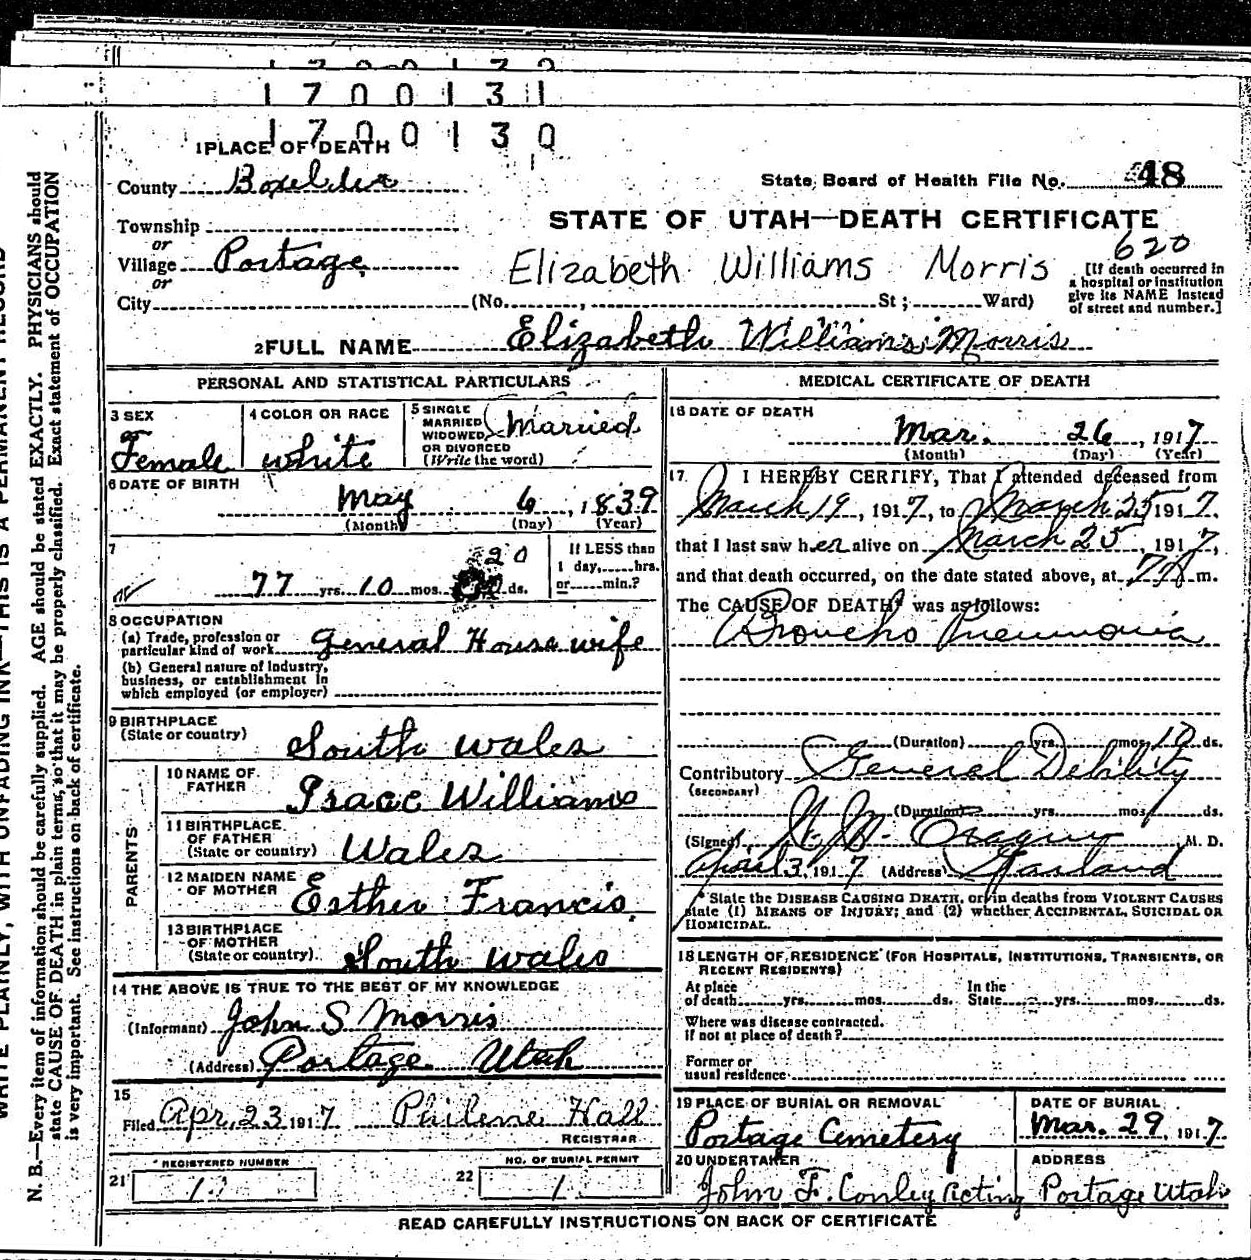 1700131
1700130
1 PLACE OF DEATH
County Boxelder
State Board of Health File No. 48
Township
or
Village Portage
or
City
STATE OF UTAH—DEATH CERTIFICATE
620
Elizabeth Williams Morris
(No. , St ; Ward)
[If death occurred in
a hospital or institution
give its NAME instead
of street and number.]
2 FULL NAME Elizabeth Williams Morris
PERSONAL AND STATISTICAL PARTICULARS
3 SEX
Female
4 COLOR OR RACE
white
5 SINGLE
MARRIED
WIDOWED
OR DIVORCED
(Write the word)
Married
6 DATE OF BIRTH
May 6, 1839
(Month) (Day) (Year)
7
77 yrs. 10 mos. 20 ds.
If LESS than
1 day, hrs.
or min.?
8 OCCUPATION
(a) Trade, profession or
particular kind of work General House wife
(b) General nature of Industry,
business, or establishment in
which employed (or employer)
9 BIRTHPLACE
(State or country)
South Wales
PARENTS
10 NAME OF
FATHER
Isaac Williams
11 BIRTHPLACE
OF FATHER
(State or country) Wales
12 MAIDEN NAME
OF MOTHER Esther Francis
13 BIRTHPLACE
OF MOTHER
(State or country) South Wales
14 THE ABOVE IS TRUE TO THE BEST OF MY KNOWLEDGE
(Informant) John S Morris
(Address) Portage Utah
15
Filed Apr. 23 1917 Philene Hall
REGISTRAR
REGISTERED NUMBER
21 1
NO. OF BURIAL PERMIT
22 1
MEDICAL CERTIFICATE OF DEATH
16 DATE OF DEATH
Mar. 26, 1917
(Month) (Day) (Year)
17 I HEREBY CERTIFY, That I attended deceased from
March 19, 1917, to March 25 1917,
that I last saw her alive on March 25, 1917,
and that death occurred, on the date stated above, at 7 m.
The CAUSE OF DEATH was as follows:
Broncho Pneumonia
(Duration) yrs. mos. 10 ds.
Contributory General Debility
(SECONDARY)
(Duration) yrs. mos. ds.
(Signed) M. D.
April 3, 1917 (Address) Garland
* State the DISEASE CAUSING DEATH, or in deaths from VIOLENT CAUSES
state (1) MEANS OF INJURY; and (2) whether ACCIDENTAL, SUICIDAL OR
HOMICIDAL.
18 LENGTH OF RESIDENCE (FOR HOSPITALS, INSTITUTIONS, TRANSIENTS, OR
RECENT RESIDENTS)
At place
of death yrs. mos. ds.
In the
State yrs. mos. ds.
Where was disease contracted,
if not at place of death?
Former or
usual residence
19 PLACE OF BURIAL OR REMOVAL
Portage Cemetery
DATE OF BURIAL
Mar. 29, 1917.
20 UNDERTAKER
John F. Conley Acting
ADDRESS
Portage Utah
READ CAREFULLY INSTRUCTIONS ON BACK OF CERTIFICATE
N. B.—Every item of information should be carefully supplied. AGE should be stated EXACTLY. PHYSICIANS should
state CAUSE OF DEATH in plain terms, so that it may be properly classified. Exact statement of OCCUPATION
is very important. See instructions on back of certificate.